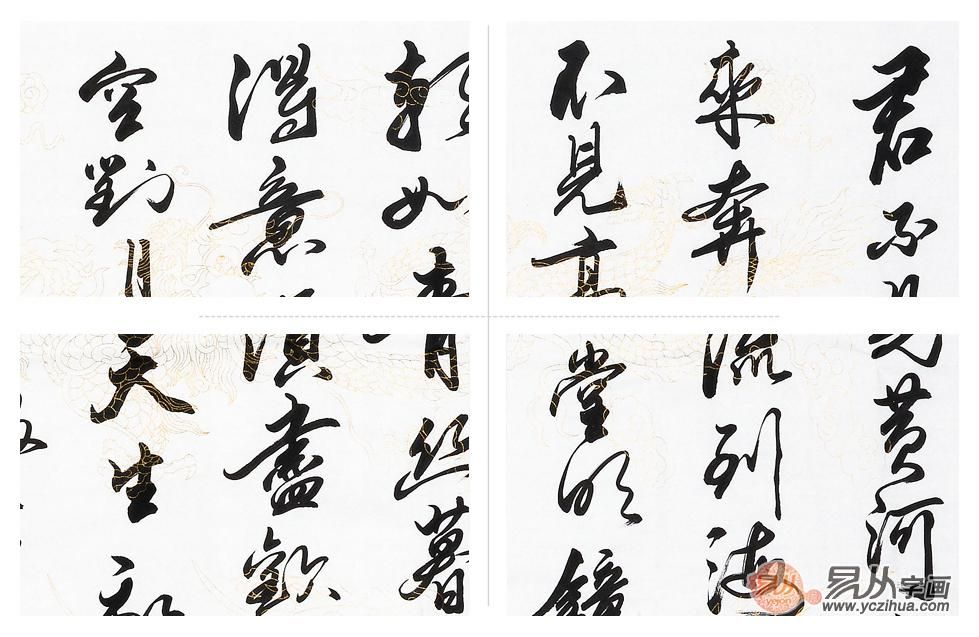 君不
來奔
不見高
朝如
得意
空對月
見黄河
流到海
堂明鏡
青丝暮
須盡歡
天生
易从字画
www.yczihua.com